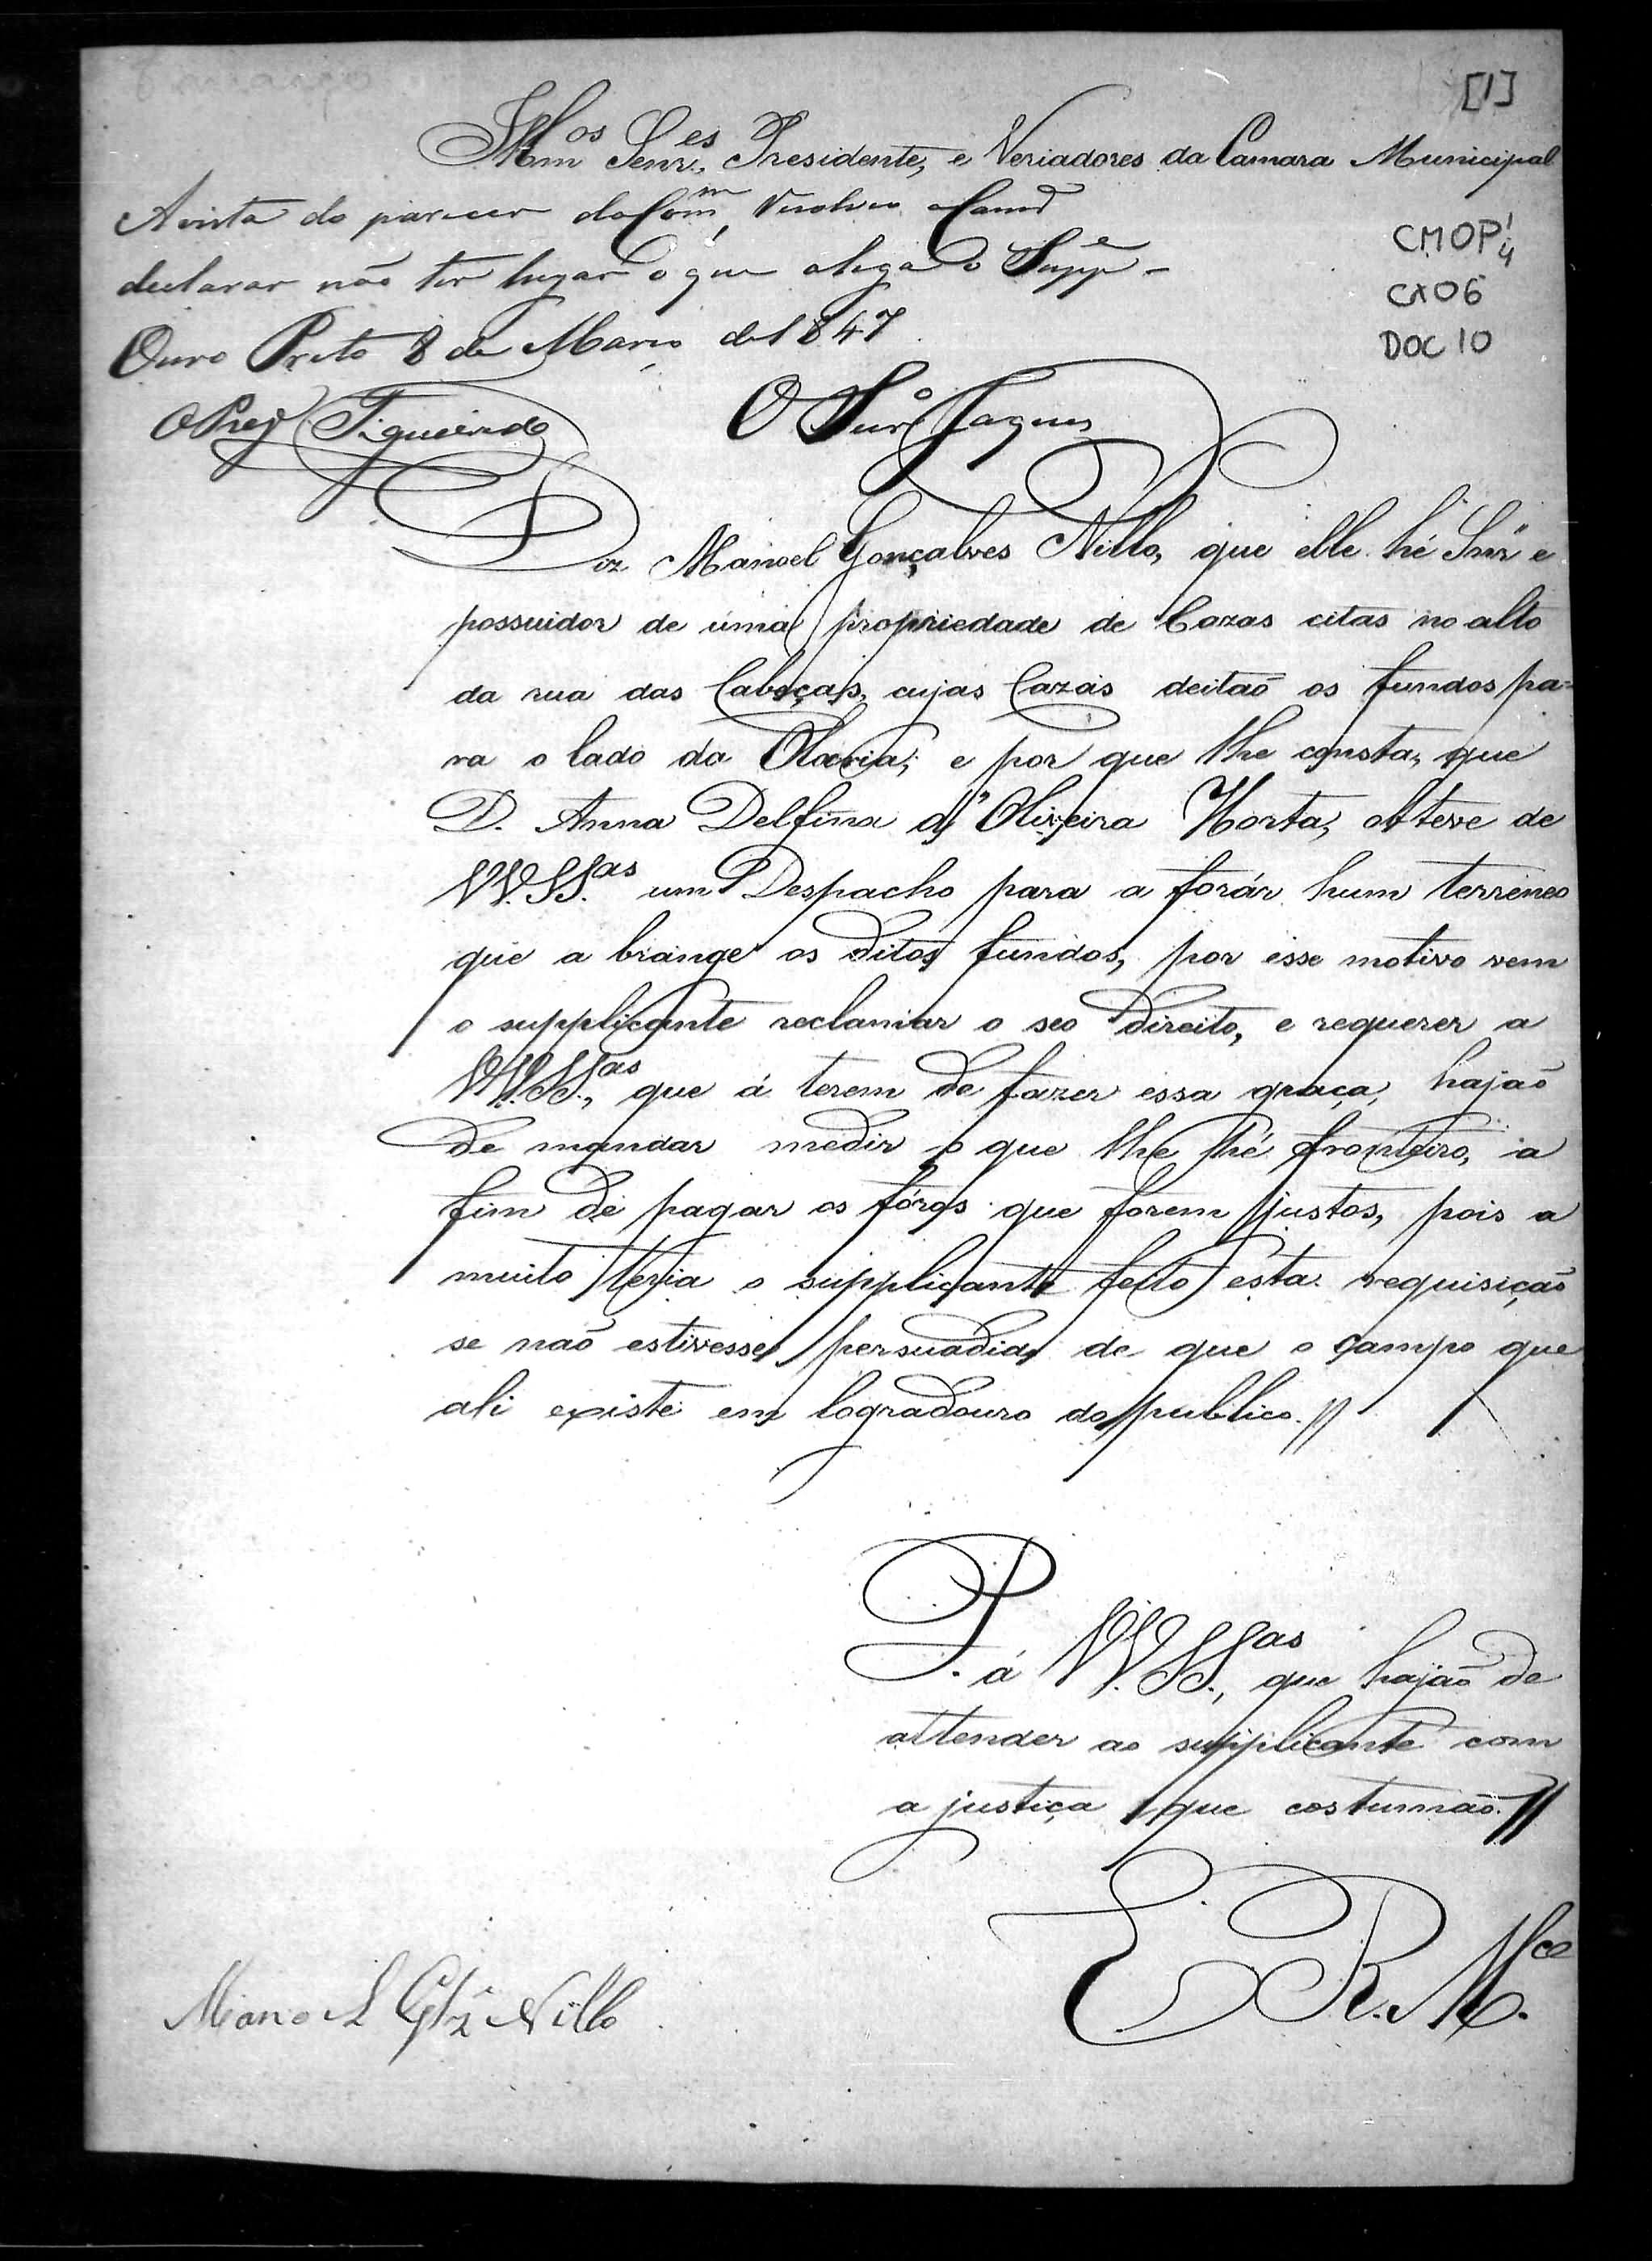 [1]
Illm.os Senr.es Presidente, e Veriadores da Camara Municipal
A vista do parecer da Com.m, a Cam.
declarar não ter lugar o que alega o Supp.e -
Ouro Preto 8 de Março de 1847
CMOP 1/4
CX06
DOC 10
O Prez. Figueiredo
O Secr.o
Diz Manoel Gonçalves Nillo, que elle hé Snr. e
possuidor de uma propriedade de Cazas citas no alto
da rua das Cabeças, cujas Cazas deitaõ os fundos pa-
ra o lado da Olaria; e por que lhe consta, que
D. Anna Delfina d'Oliveira Horta, obteve de
VV.SS.as um Despacho para a forár hum terreneo
que a brange os ditos fundos, por esse motivo vem
o supplicante reclamar o seo direito, e requerer a
VV.SS.as, que á terem de fazer essa graça, hajaõ
de mandar medir o que lhe hé fronteiro, a
fim de pagar os fóros que forem justos, pois a
muito teria o supplicante feito esta requisiçaõ
se naõ estivesse persuadido de que o campo que
ali existe em logradouro do publico.//
P. á VV.SS.as, que hajaõ de
attender ao supplicante com
a justiça que costumaõ.//
E. R. M.ce
Manoel Glz Nillo